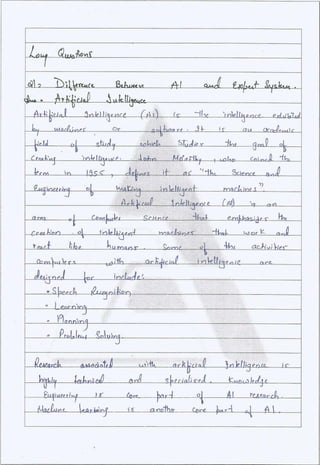 Long Questions
Q1: Difference Between AI and Expert System.
Ans. Artificial Intelligence
Artificial Intelligence (AI) is the intelligence exhibited
by machines or software. It is an academic
field of study which Studies the goal of
Creating intelligence. John McCarthy, who coined the
term in 1955, defines it as "the Science and
Engineering of making intelligent machines"
Artificial Intelligence (AI) is an
area of Computer Science that emphasizes the
Creation of intelligent machines that work and
react like humans. Some of the activities
computers with artificial intelligence are
designed for include:
• Speech Recognition
- Learning
• Planning
• Problems Solving.
Research associated with artificial Intelligence is
highly technical and specialized. Knowledge
Engineering is core part of AI research.
Machine Learning is another core part of AI.